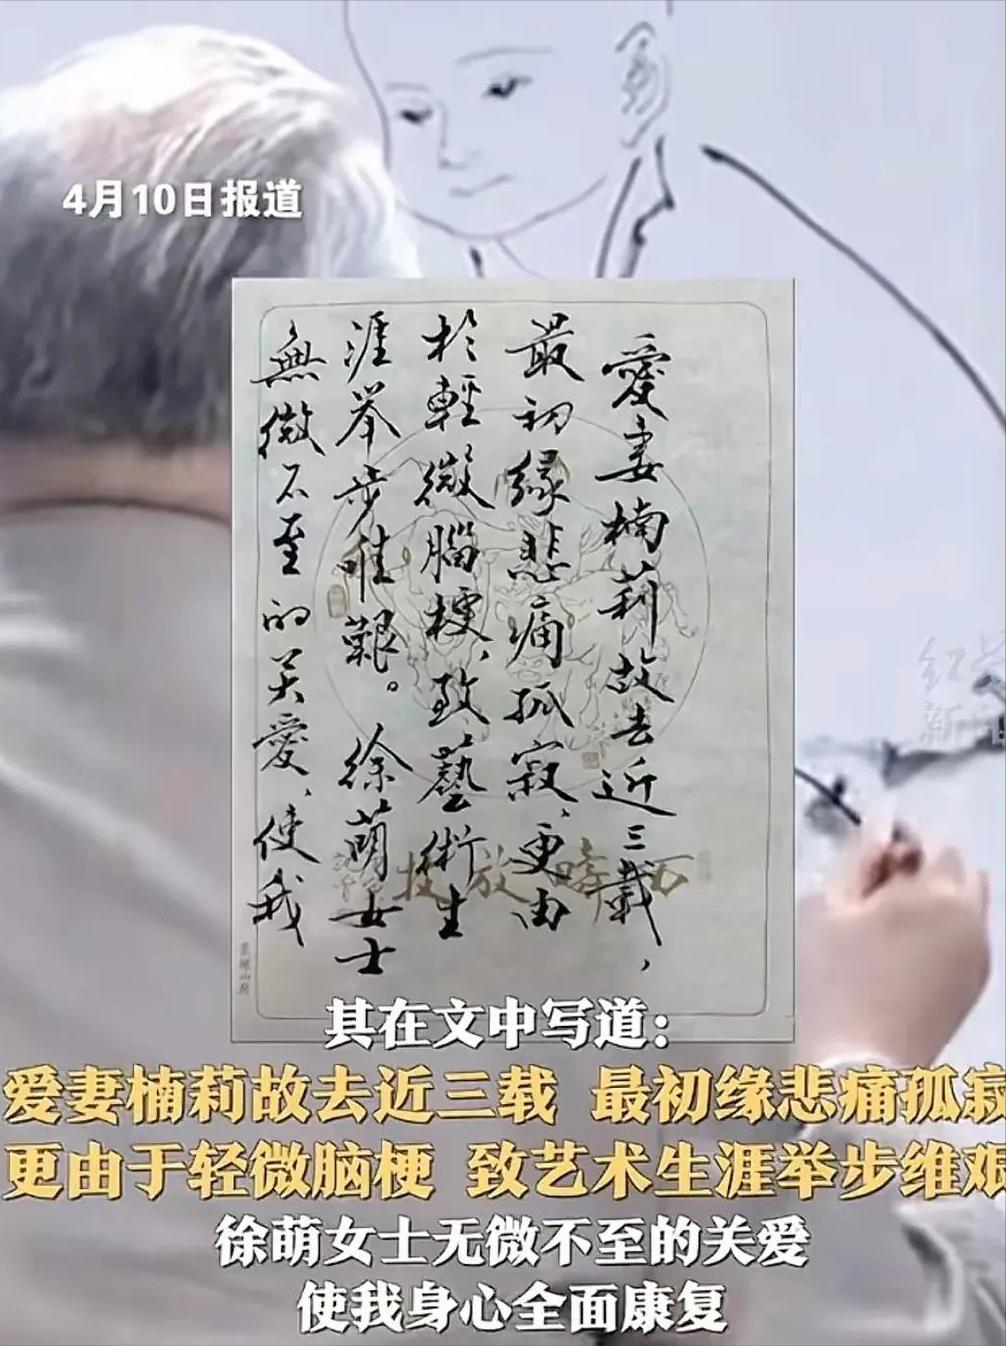 4月10日报道
愛妻楠莉故去近三載，
最初緣悲痛孤寂，更由
於輕微腦梗，致藝術生
涯举步唯艱。徐萌女士
無微不至的关愛，使我
其在文中写道：
爱妻楠莉故去近三载 最初缘悲痛孤寂
更由于轻微脑梗 致艺术生涯举步维艰
徐萌女士无微不至的关爱
使我身心全面康复